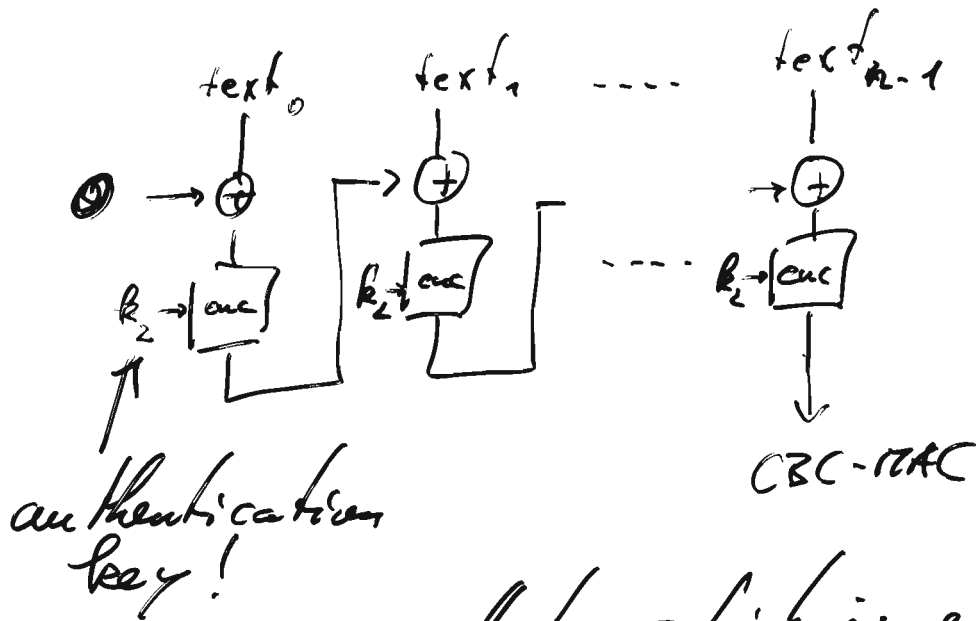 text₀ text₁ ---- text n-1
0 → + + → +
k₂ → enc k₂ → enc ---- k₂ → enc
CBC-MAC
authentication
key!